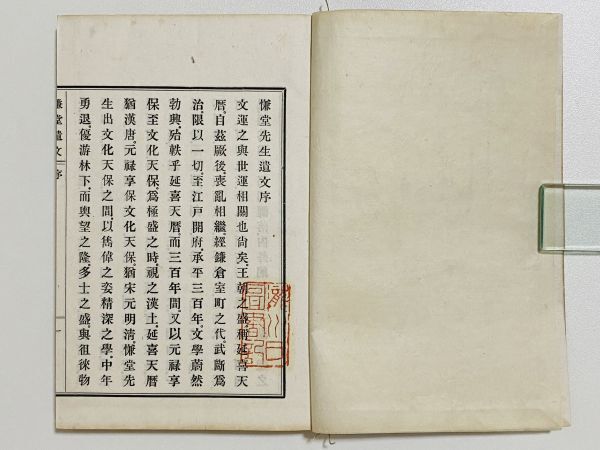 慊堂先生遺文序
文運之與世運相關也尙矣、王朝之盛、稱延喜天
曆、自茲厥後、喪亂相繼、經鎌倉室町之代、武斷爲
治、限以一切、至江戶開府、承平三百年、文學蔚然
勃興、殆軼乎延喜天曆、而三百年間、又以元祿享
保至文化天保、爲極盛之時、視之漢土、延喜天曆
猶漢唐、元祿享保文化天保、猶宋元明淸、慊堂先
生出文化天保之間、以儁偉之姿、精深之學、中年
勇退、優游林下、而輿望之隆、多士之盛、與徂徠物
慊堂遺文 序